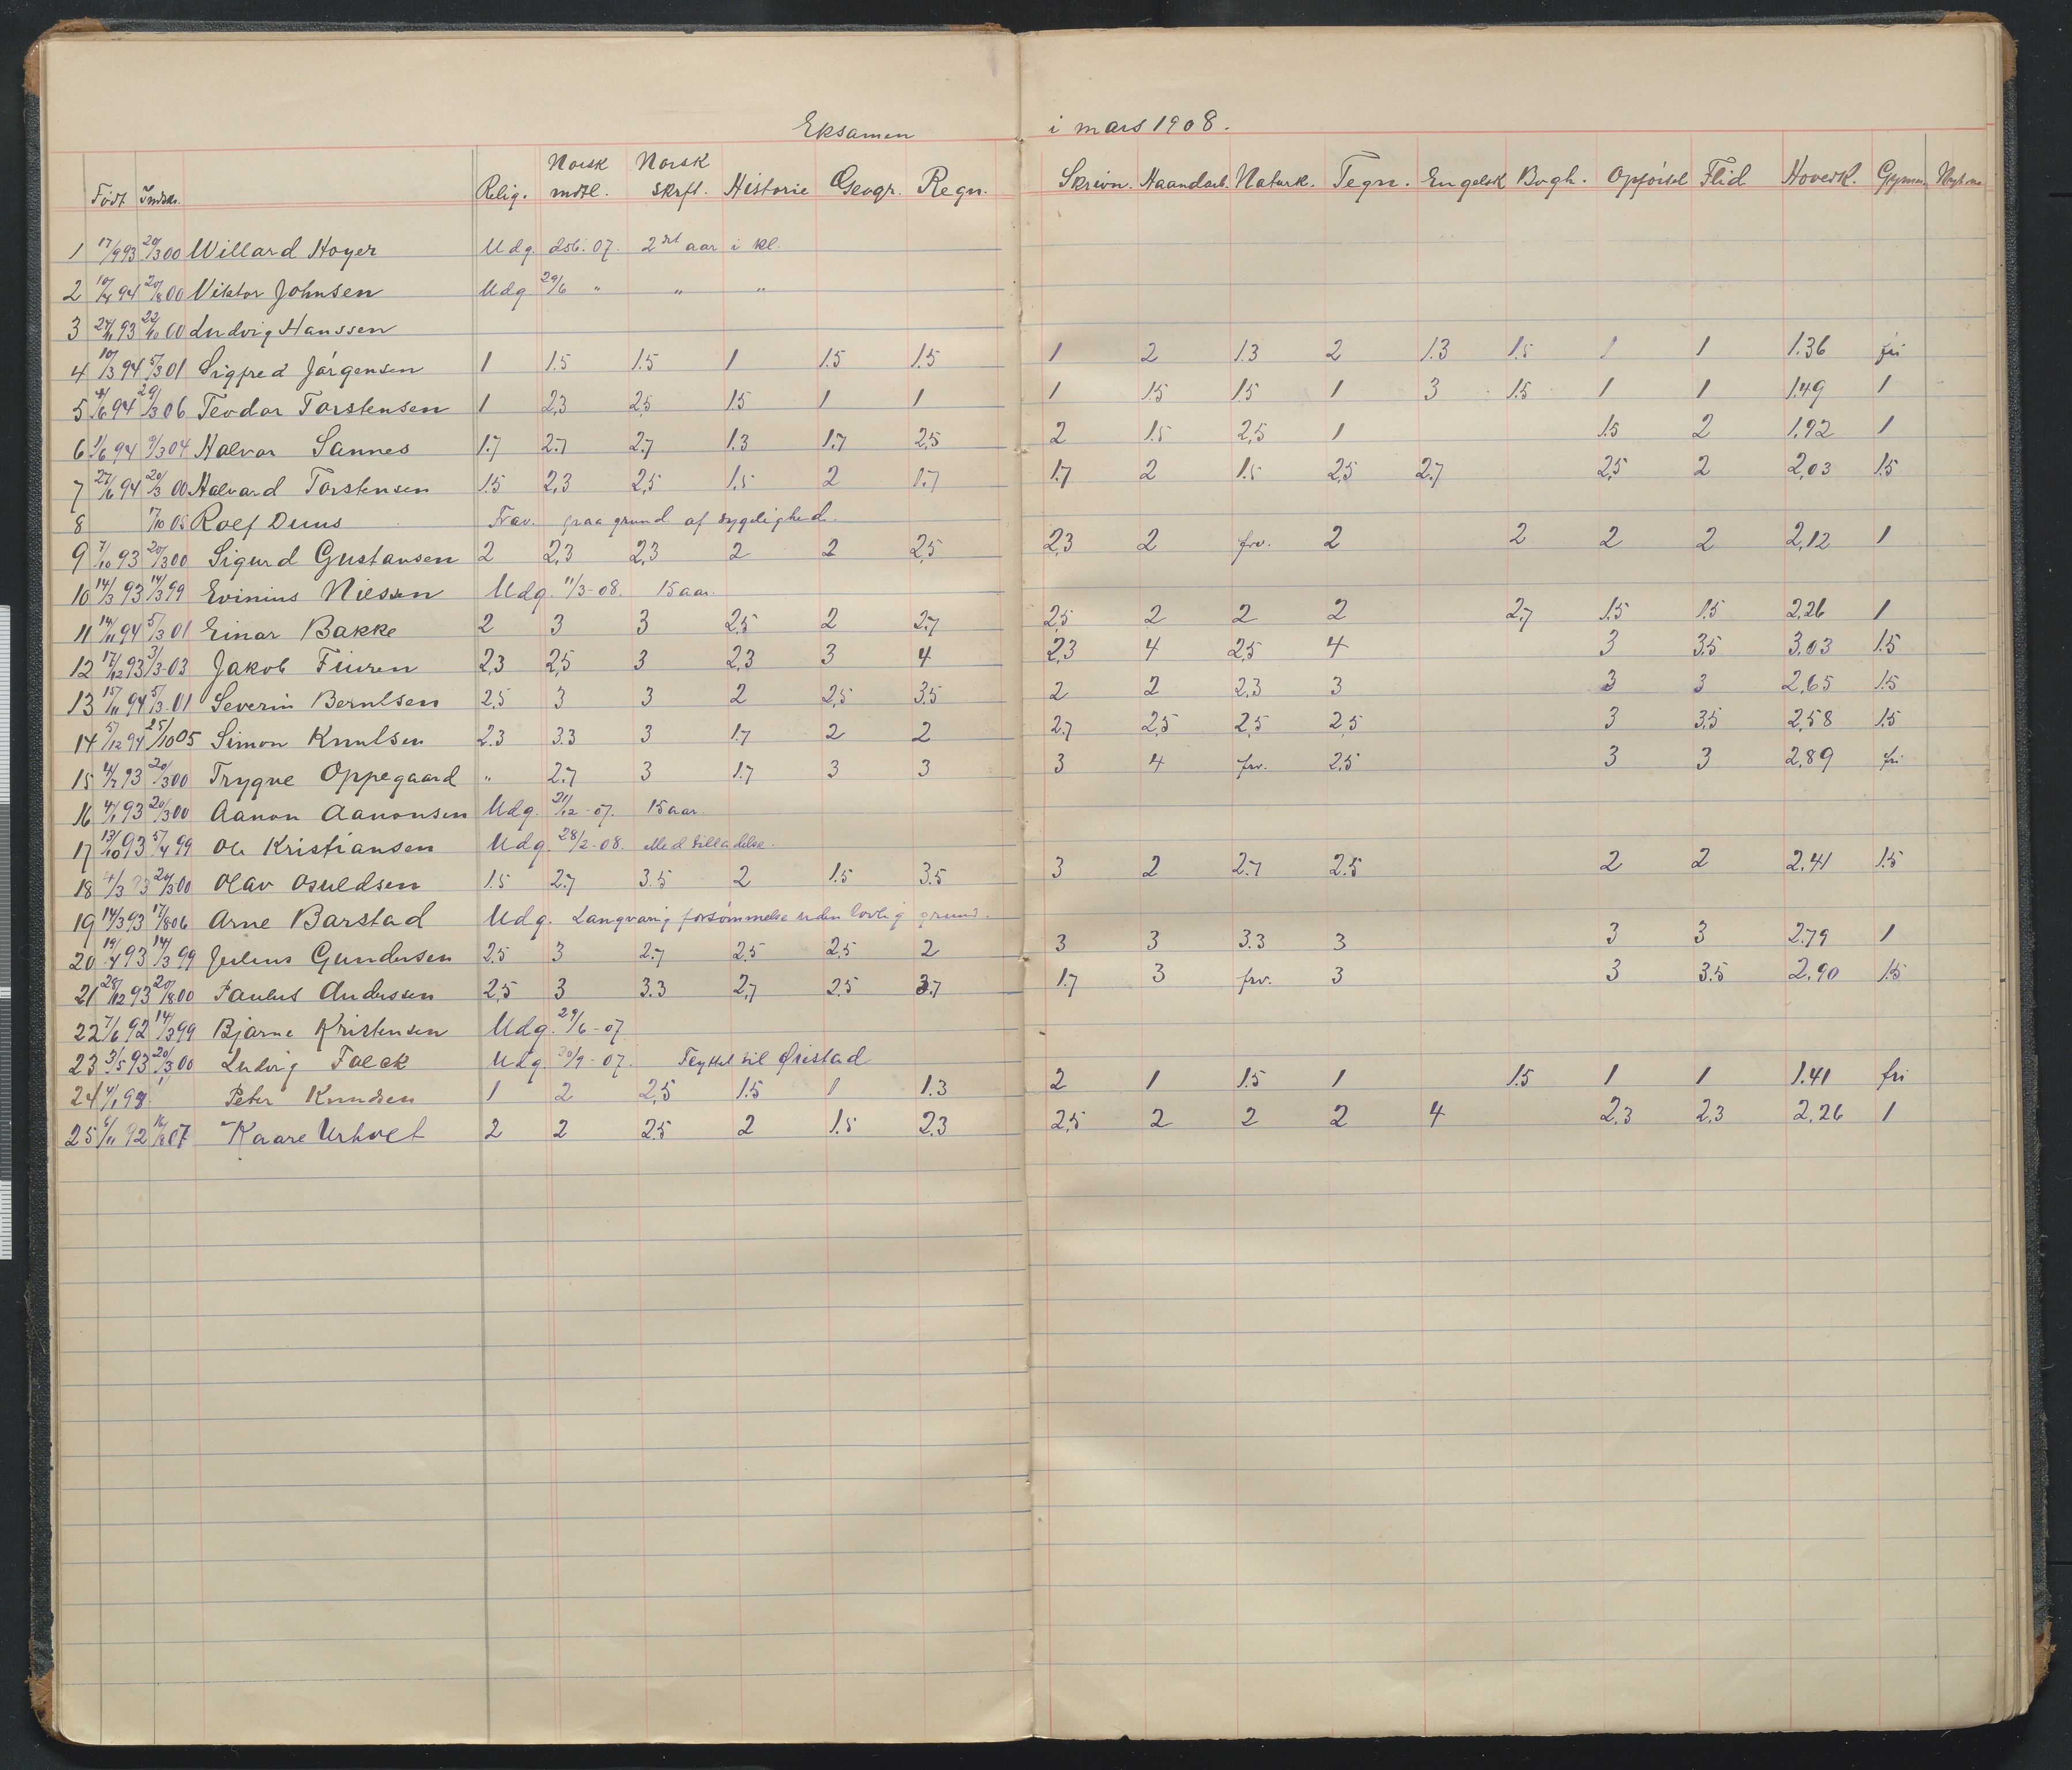 Eksamen i mars 1908.
Født Indsk. Relig. Norsk mdtl. Norsk skrftl. Historie Geogr. Regn. Skrivn. Haandarb. Naturk. Tegn. Engelsk Bogh. Opførsel Flid Hovedk. Gymn.
1 17/9 93 20/3 00 Willard Hoyer Udg. dsb. 07. 2det aar i kl.
2 94 20/8 00 Viktor Johnsen Udg 29/6 " " "
3 93 00 Ludvig Hanssen
4 10/3 94 5/3 01 Sigfred Jørgensen 1 1.5 1.5 1 1.5 1.5 1 2 1.3 2 1.3 1.5 1 1 1.36 fri
5 94 29/3 06 Teodor Torstensen 1 2,3 2,5 1.5 1 1 1 1.5 1.5 1 3 1.5 1 1 1.49 1
6 1/6 94 9/3 04 Halvor Sannes 1.7 2.7 2,7 1.3 1.7 2,5 2 1.5 2,5 1 1.5 2 1.92 1
7 27/6 94 20/3 00 Halvard Torstensen 1.5 2,3 2,5 1.5 2 1.7 1.7 2 1.5 2,5 2,7 2,5 2 2,03 1.5
8 7/10 05 Rolf Duus Frav. paa grund af sygelighed.
9 7/10 93 20/3 00 Sigurd Gustavsen 2 2,3 2,3 2 2 2,5 2,3 2 frv. 2 2 2 2 2,12 1
10 14/3 93 14/3 99 Evinius Nilssen Udg. 11/3-08. 15 aar.
11 14/11 94 5/3 01 Einar Bakke 2 3 3 2,5 2 2,7 2,5 2 2 2 2,7 1.5 1.5 2,26 1
12 17/12 93 3/3-03 Jakob Fiuren 2,3 2,5 3 2,3 3 4 2,3 4 2,5 4 3 3.5 3,03 1.5
13 15/11 94 5/3-01 Severin Berntsen 2,5 3 3 2 2,5 3.5 2 2 2.3 3 3 3 2,65 1.5
14 5/12 94 25/10 05 Simon Knutsen 2.3 3.3 3 1.7 2 2 2.7 2,5 2,5 2,5 3 3.5 2,58 1.5
15 93 20/3 00 Trygve Oppegaard " 2.7 3 1.7 3 3 3 4 frv. 2.5 3 3 2,89 fri
16 4/1 93 20/3 00 Aanon Aanonsen Udg. 21/12-07. 15 aar.
17 13/10 93 5/4 99 Ole Kristiansen Udg. 28/2-08. Med tilladelse.
18 4/3 93 20/3 00 Olav Osuldsen 1.5 2.7 3.5 2 1.5 3.5 3 2 2.7 2.5 2 2 2,41 1.5
19 14/3 93 17/8 06 Arne Barstad Udg. Langvarig forsømmelse uden lovlig grund.
20 19/4 93 14/3 99 Julius Gundersen 2.5 3 2.7 2.5 2.5 2 3 3 3.3 3 3 3 2.79 1
21 28/12 93 20/8 00 Paulus Andersen 2,5 3 3.3 2,7 2.5 3.7 1.7 3 frv. 3 3 3.5 2.90 1.5
22 7/6 92 14/3 99 Bjarne Kristensen Udg. 29/6-07
23 3/5 93 20/3 00 Ludvig Falck Udg. 07. Flyttet til Øiestad
24 Peter Knudsen 1 2 2,5 1.5 1 1.3 2 1 1.5 1 1.5 1 1 1.41 fri
25 6/11 92 07 Kaare Urholt 2 2 2.5 2 1.5 2.3 2,5 2 2 2 4 2.3 2,3 2.26 1